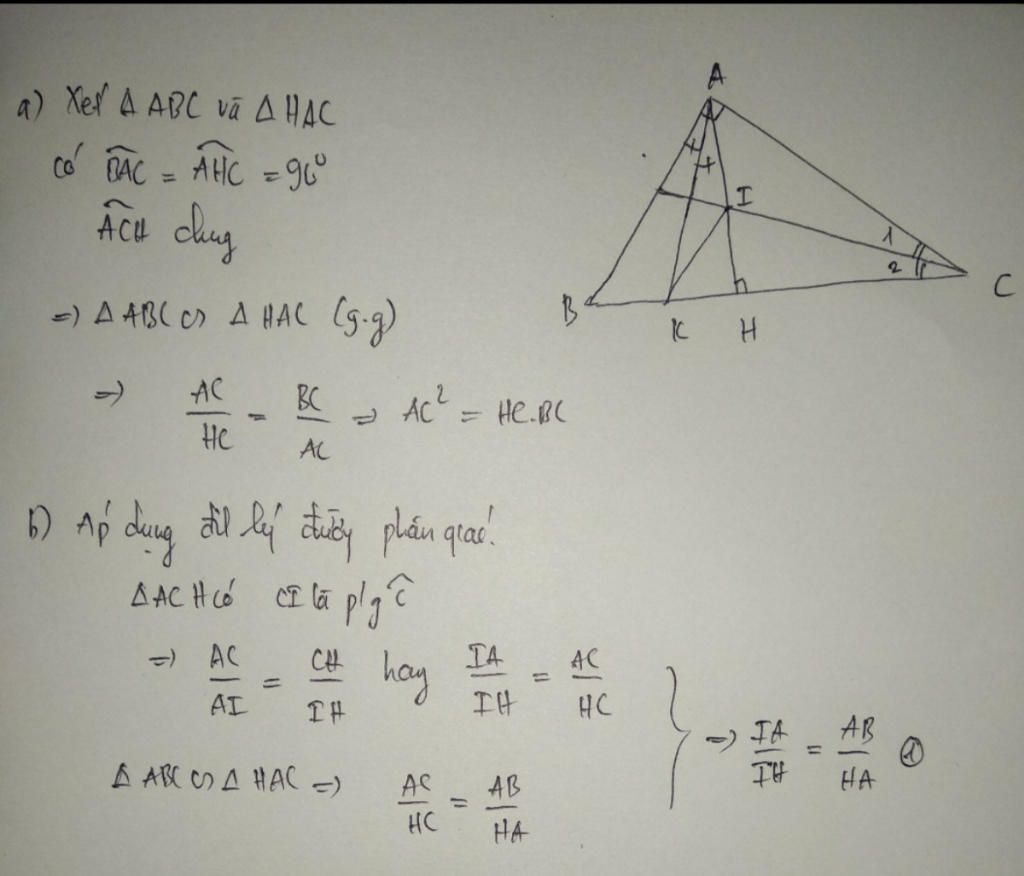 a) Xét Δ ABC và Δ HAC
có BAC = AHC = 90°
ACH chung
=> Δ ABC ∽ Δ HAC (g.g)
=> AC/HC = BC/AC => AC² = HC.BC
b) Áp dụng đl lý đường phân giác.
Δ ACH có CI là p/g Ĉ
=> AC/AI = CH/IH hay IA/IH = AC/HC
Δ ABC ∽ Δ HAC => AC/HC = AB/HA
=> IA/IH = AB/HA ①
A
I
1
2
B
K
H
C